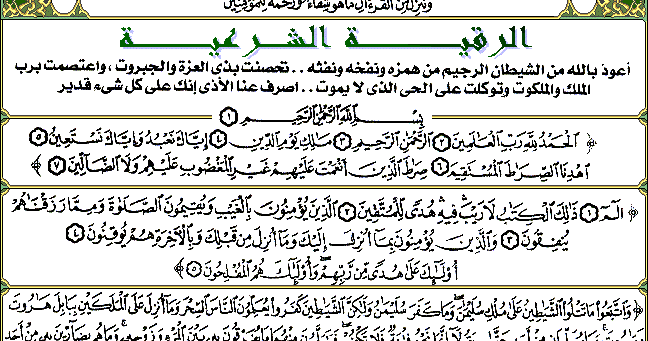 وننزل من القرءان ما هو شفاء ورحمة للمؤمنين
الرقيـــة الشرعيـــة
أعوذ بالله من الشيطان الرجيم من همزه ونفخه ونفثه . . تحصنت بذى العزة والجبروت ، واعتصمت برب
الملك والملكوت وتوكلت على الحى الذى لا يموت . . اصرف عنا الأذى إنك على كل شىء قدير
بِسْمِ اللَّهِ الرَّحْمَٰنِ الرَّحِيمِ ١
﴿ الْحَمْدُ لِلَّهِ رَبِّ الْعَالَمِينَ ٢ الرَّحْمَٰنِ الرَّحِيمِ ٣ مَالِكِ يَوْمِ الدِّينِ ٤ إِيَّاكَ نَعْبُدُ وَإِيَّاكَ نَسْتَعِينُ ٥
اهْدِنَا الصِّرَاطَ الْمُسْتَقِيمَ ٦ صِرَاطَ الَّذِينَ أَنْعَمْتَ عَلَيْهِمْ غَيْرِ الْمَغْضُوبِ عَلَيْهِمْ وَلَا الضَّالِّينَ ٧ ﴾
﴿ الم ١ ذَٰلِكَ الْكِتَابُ لَا رَيْبَ فِيهِ هُدًى لِلْمُتَّقِينَ ٢ الَّذِينَ يُؤْمِنُونَ بِالْغَيْبِ وَيُقِيمُونَ الصَّلَاةَ وَمِمَّا رَزَقْنَاهُمْ
يُنْفِقُونَ ٣ وَالَّذِينَ يُؤْمِنُونَ بِمَا أُنْزِلَ إِلَيْكَ وَمَا أُنْزِلَ مِنْ قَبْلِكَ وَبِالْآخِرَةِ هُمْ يُوقِنُونَ ٤
أُولَٰئِكَ عَلَىٰ هُدًى مِنْ رَبِّهِمْ وَأُولَٰئِكَ هُمُ الْمُفْلِحُونَ ٥ ﴾
﴿ وَاتَّبَعُوا مَا تَتْلُو الشَّيَاطِينُ عَلَىٰ مُلْكِ سُلَيْمَانَ وَمَا كَفَرَ سُلَيْمَانُ وَلَٰكِنَّ الشَّيَاطِينَ كَفَرُوا يُعَلِّمُونَ النَّاسَ السِّحْرَ وَمَا أُنْزِلَ عَلَى الْمَلَكَيْنِ بِبَابِلَ هَارُوتَ